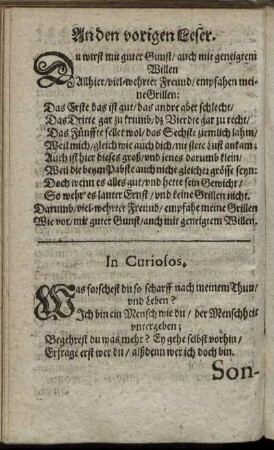 An den vorigen Leser.
DU wirst mit guter Gunst/ auch mit geneigtem
Willen
Allhier/ viel-wehrter Freund/ empfahen mei-
ne Grillen:
Das Erste das ist gut/ das andre aber schlecht/
Das Dritte gar zu krumb/ dz Vierdte gar zu recht/
Das Fünffte fellet wol/ das Sechste ziemlich lahm/
Weil mich/ gleich wie auch dich/ nit stete Lust ankam;
Auch ist hier dieses groß/ vnd jenes darumb klein/
Weil die beym Pabste auch nicht gleicher grösse seyn:
Doch wenn es alles gut/ vnd hette sein Gewicht/
So wehr es lauter Ernst/ vnd keine Grillen nicht.
Darumb/ viel-wehrter Freund/ empfahe meine Grillen
Wie vor/ mit guter Gunst/ auch mit geneigtem Willen.
In Curiosos.
WAs forschest du so scharff nach meinem Thun/
vnd Leben?
Ich bin ein Mensch wie du/ der Menschheit
vntergeben;
Begehrest du was mehr? Ey gehe selbst vorhin/
Erfrage erst wer du/ alßdenn wer ich doch bin.
Son-